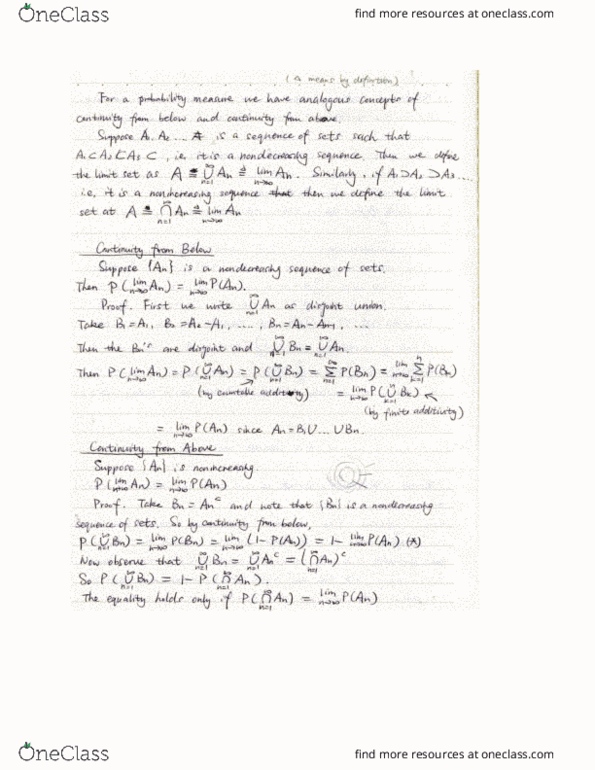 OneClass
find more resources at oneclass.com
(≜ means by definition)
For a probability measure we have analogous concepts of
continuity from below and continuity from above.
Suppose A₁ A₂ ... is a sequence of sets such that
A₁ ⊂ A₂ ⊂ A₃ ⊂ , i.e. it is a nondecreasing sequence. Then we define
the limit set as A ≜ ∪_{n=1}^∞ An ≜ lim_{n→∞} An. Similarly, if A₁ ⊃ A₂ ⊃ A₃ ...
i.e. it is a nonincreasing sequence then we define the limit
set at A ≜ ∩_{n=1}^∞ An ≜ lim_{n→∞} An
Continuity from Below
Suppose {An} is a nondecreasing sequence of sets.
Then P(lim_{n→∞} An) = lim_{n→∞} P(An).
Proof. First we write ∪_{n=1}^∞ An as disjoint union.
Take B₁=A₁, B₂=A₂-A₁, ...., Bn=An-An-1, ...
Then the Bn's are disjoint and ∪_{n=1}^∞ Bn = ∪_{n=1}^∞ An.
Then P(lim_{n→∞} An) = P(∪_{n=1}^∞ An) = P(∪_{n=1}^∞ Bn) = Σ_{n=1}^∞ P(Bn) = lim_{n→∞} Σ_{k=1}^n P(Bk)
(by countable additivity) = lim_{n→∞} P(∪_{k=1}^n Bk)
(by finite additivity)
= lim_{n→∞} P(An) since An = B₁∪...∪Bn.
Continuity from Above
Suppose {An} is nonincreasing.
P(lim_{n→∞} An) = lim_{n→∞} P(An)
Proof. Take Bn = Anᶜ and note that {Bn} is a nondecreasing
sequence of sets. So by continuity from below,
P(∪_{n=1}^∞ Bn) = lim_{n→∞} P(Bn) = lim_{n→∞} (1-P(An)) = 1- lim_{n→∞} P(An) (*)
Now observe that ∪_{n=1}^∞ Bn = ∪_{n=1}^∞ Anᶜ = (∩_{n=1}^∞ An)ᶜ
So P(∪_{n=1}^∞ Bn) = 1- P(∩_{n=1}^∞ An).
The equality holds only if P(∩_{n=1}^∞ An) = lim_{n→∞} P(An)
OneClass
find more resources at oneclass.com